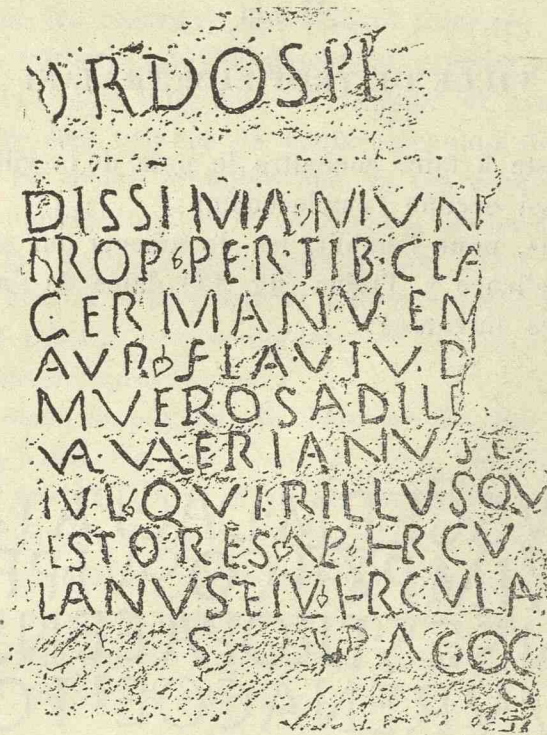 ORDO SPL
DISSIMIA MVN
TROP PER TIB CLA
GERMANV EN
AVR FLAVIV D
M VEROS ADILI
VA VALERIANVS E
IVL QVIRILLVS QV
ESTORES AP HRCV
LANVS EIV HRCVLA